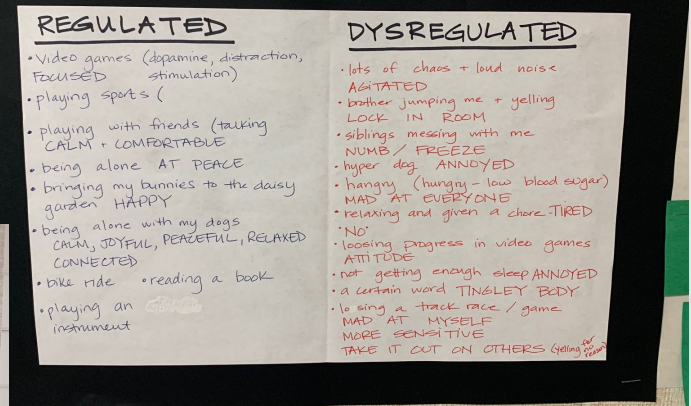 REGULATED
• Video games (dopamine, distraction,
FOCUSED stimulation)
• playing sports (
• playing with friends (talking
CALM + COMFORTABLE
• being alone AT PEACE
• bringing my bunnies to the daisy
garden HAPPY
• being alone with my dogs
CALM, JOYFUL, PEACEFUL, RELAXED
CONNECTED
• bike ride • reading a book
• playing an
instrument
DYSREGULATED
• lots of chaos + loud noise
AGITATED
• brother jumping me + yelling
LOCK IN ROOM
• siblings messing with me
NUMB / FREEZE
• hyper dog ANNOYED
• hangry (hungry - low blood sugar)
MAD AT EVERYONE
• relaxing and given a chore TIRED
• "NO"
• loosing progress in video games
ATTITUDE
• not getting enough sleep ANNOYED
• a certain word TINGLEY BODY
• losing a track race / game
MAD AT MYSELF
MORE SENSITIVE
TAKE IT OUT ON OTHERS (yelling for no reason)